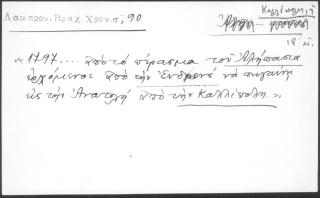 Λαμπρου. Βραχ. Χρον. σ, 90
Καλλίπολη, ἡ
18 μ.
« 1797 ... ἀπὸ τὸ πέρασμα τοῦ Ἀλήπασια
ἐρχόμενος ἀπὸ τὴν Ἐνδρενὲ νὰ πηγαίνῃ
εἰς τὴν Ἀνατολὴ ἀπὸ τὴν Καλλίπολη. »